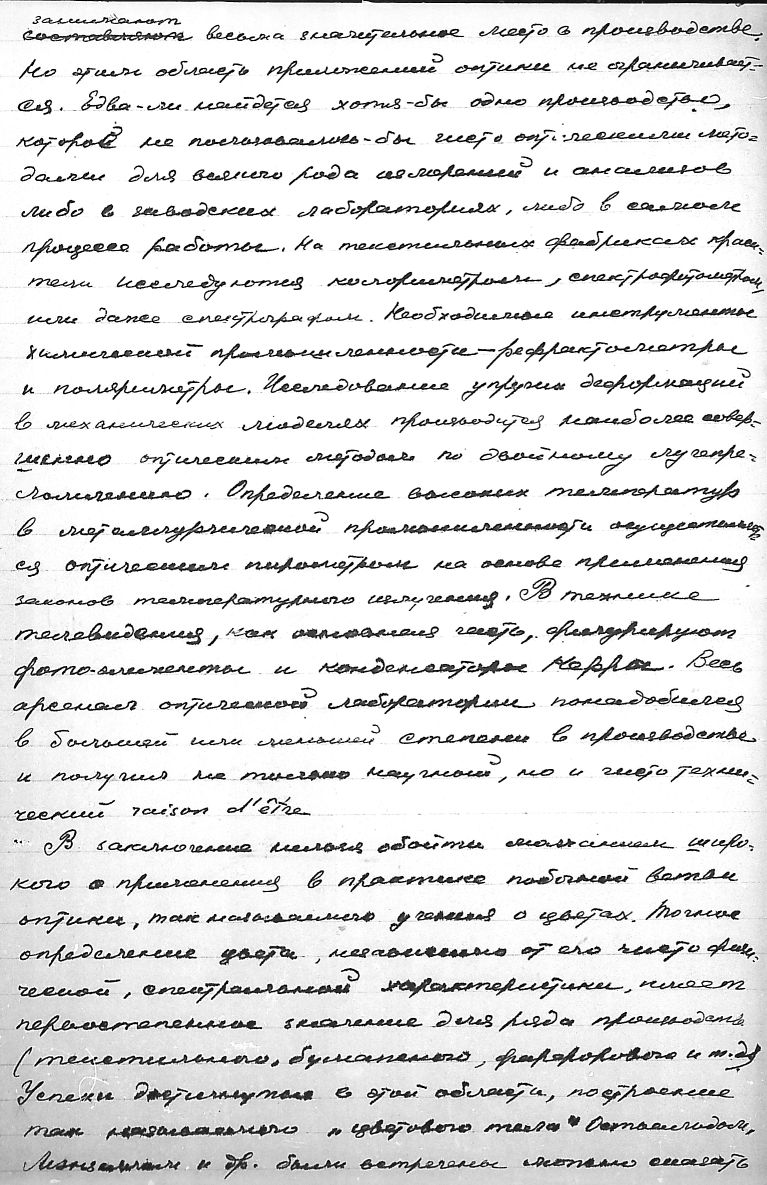 занимают
составляют весьма значительное место в производстве.
Но этим область приложений оптики не ограничивает-
ся. Едва-ли найдется хотя-бы одно производство,
которой не пользовалось-бы чисто оптическими мето-
дами для всякого рода измерений и анализов
либо в заводских лабораториях, либо в самом
процессе работы. На текстильных фабриках краси-
тели исследуются колориметром, спектрофотометром,
или даже спектрографом. Необходимые инструменты
химической промышленности – рефрактометры
и поляриметры. Исследование упругих деформаций
в механических моделях производится наиболее совер-
шенно оптическим методом по двойному лучепре-
ломлению. Определение высоких температур
в металлургической промышленности осуществляет-
ся оптическим пирометром на основе применения
законов температурного излучения. В технике
телевидения, как основная часть, фигурируют
фото-элементы и конденсаторы Керра. Весь
арсенал оптической лаборатории понадобился
в большей или меньшей степени в производстве
и получил не только научный, но и чисто техни-
ческий raison d'être
В заключение нельзя обойти молчанием широ-
кого применения в практике побочной ветви
оптики, так называемого учения о цветах. Точное
определение цвета, независимо от его чисто физи-
ческой, спектральной характеристики, имеет
первостепенное значение для ряда производств
(текстильного, бумажного, фарфорового и т.д.)
Успехи достигнутые в этой области, построение
так называемого „цветового тела" Оствальдом,
и др. были встречены можно сказать